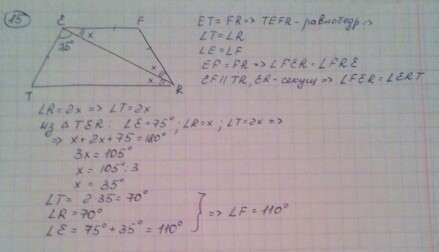 25
E F
x
75°
x
x
T R
ET = FR => TEFR - равнотедр =>
∠T = ∠R
∠E = ∠F
EF = FR => ∠FER = ∠FRE
EF || TR, ER - секущ => ∠FER = ∠ERT
∠R = 2x => ∠T = 2x
Из △ TER: ∠E = 75°; ∠R = x; ∠T = 2x =>
=> x + 2x + 75 = 180°
3x = 105°
x = 105 : 3
x = 35°
∠T = 2 35 = 70°
∠R = 70°
∠E = 75° + 35° = 110°
=> ∠F = 110°